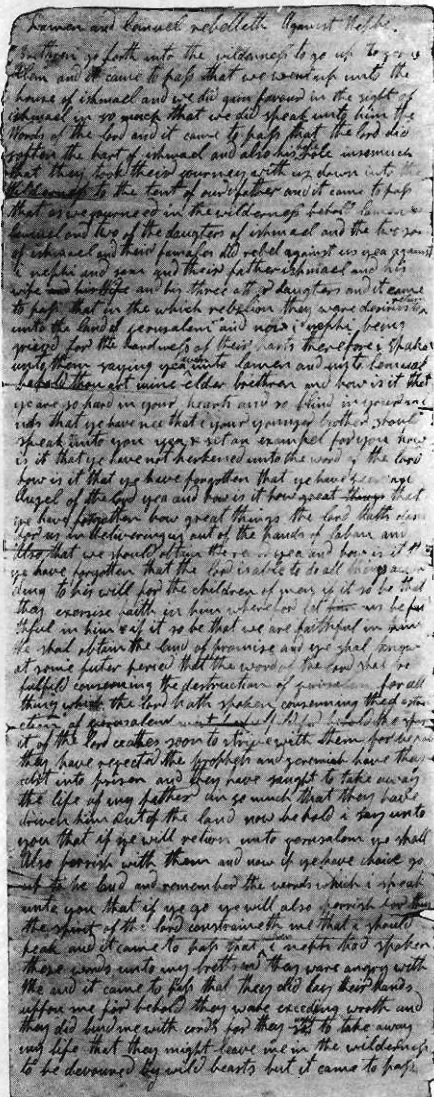 Lamen and Lemuel rebelleth Against Nephi.
brethren go forth unto the wilderness to go up to
them and it came to pass that we went up unto the
house of ishmael and we did gain favour in the sight of
ishmael in so much that we did speak unto him the
Words of the lord and it came to pass that the lord did
soften the hart of ishmael and also his hole insomuch
that they took their journey with us down into the
Wilderness to the tent of our father and it came to pass
that as we journeed in the wilderness behold laman &
lemuel and two of the daughters of ishmael and the two
of ishmael and their did rebel against us yea against
i nephi and sam and their father ishmael and his
wife and his three daughters and it came
to pass that in the which rebelion they were
unto the land of jerusalem and now i nephi being
grieved for the hardness of their harts therefore i spake
unto them saying yea even unto lamen and unto lemuel
behold thou art mine elder brethren and how is it that
ye are so hard in your hearts and so blind in your mi
nds that ye have nee that i your younger brother should
speak unto you yea & set an exampel for you how
is it that ye have not herkened unto the word of the lord
how is it that ye have forgotten that ye have
Angel of the lord yea and how is it how great things that
ye have forgotten how great things the lord hath
for us in out of the hands of laban and
also that we should obtain the yea and how is it
ye have forgotten that the lord is able to do all things
ding to his will for the children of men if it so be that
they exersise faith in him wherefore let us be fai
thful in him & if it so be that we are faithful in him
we shal obtain the land of promise and ye shal
at some futer period that the word of the lord shal be
fulfild conserning the destruction of jerusalem for all
thing which the lord hath spoken conserning the
ction of jerusalem behold the spir
it of the lord ceathes soon to strive with them for
they have rejected the prophets and jeremiah have they
cast into prison and they have saught to take away
the life of my father in so much that they have
driven him out of the land now behold i say unto
you that if ye will return unto jerusalem ye shall
Also perrish with them and now if ye have choice go
up to the land and remember the words which i speak
unto you that if ye go ye will also perrish for
the spirit of the lord constraineth me that i should
speak and it came to pass that i nephi had spoken
these words unto my brethren they ware angry with
Me and it came to pass that they did lay their hands
uppon me for behold they ware exceding wroth and
they did bind me with cords for they to take away
my life that they might leave me in the wilderness
to be devoured by wild beasts but it came to pass